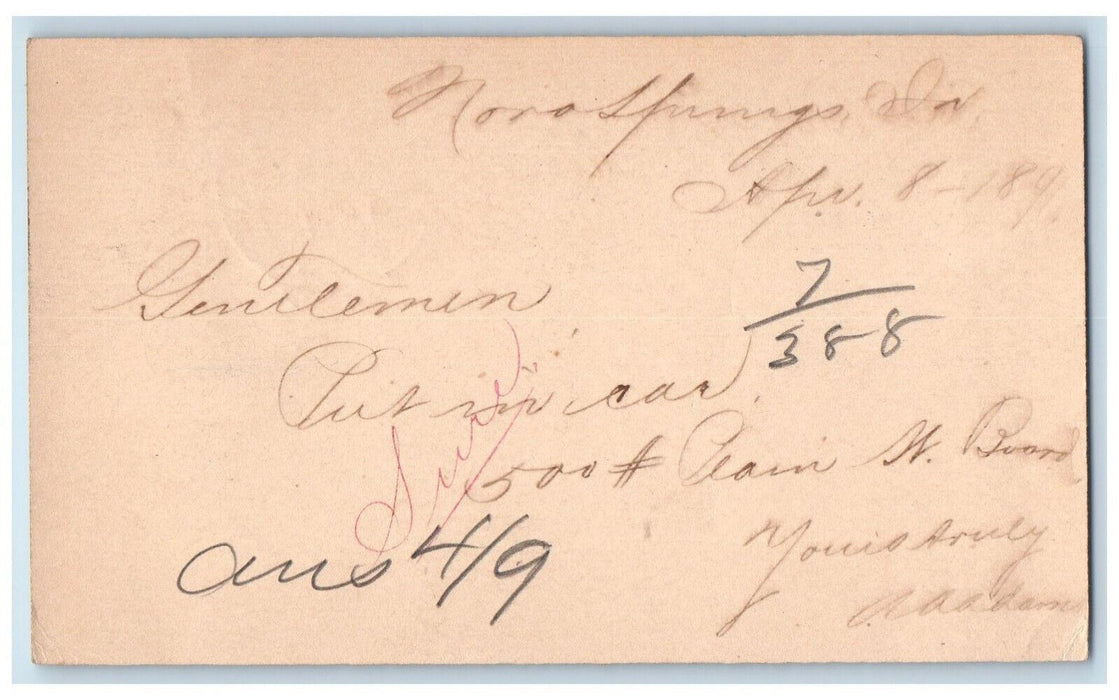 Nora Springs, Ia.
Apr. 8 - 189
Gentlemen
7
388
Put in car
500 # Plain St. Board
Yours truly
Adams
ans 4/9